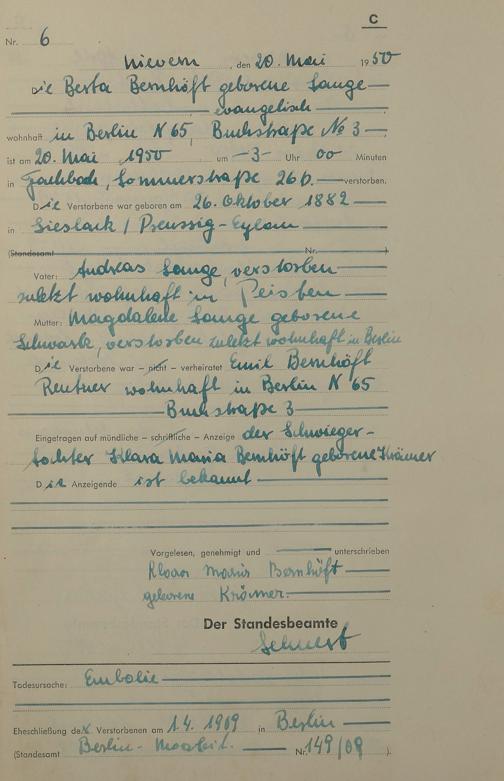 C
Nr. 6
Nievern, den 20. Mai 1950
Die Berta Bernhöft geborene Lange
evangelisch
wohnhaft in Berlin N 65, Buchstraße No 3
ist am 20. Mai 1950 um -3- Uhr 00 Minuten
in Fachbach, Sommerstraße 26b. verstorben.
Die Verstorbene war geboren am 26. Oktober 1882
in Lieslack / Preussig-Eylau
(Standesamt Nr. )
Vater: Andreas Lange, verstorben
zuletzt wohnhaft in Peisten
Mutter: Magdalene Lange geborene
Schwark, verstorben zuletzt wohnhaft in Berlin
Die Verstorbene war – nicht – verheiratet Emil Bernhöft
Rentner wohnhaft in Berlin N 65
Buchstraße 3
Eingetragen auf mündliche – schriftliche – Anzeige der Schwieger-
tochter Klara Maria Bernhöft geborene Krämer
Die Anzeigende ist bekannt
Vorgelesen, genehmigt und unterschrieben
Klara Maria Bernhöft
geborene Krämer.
Der Standesbeamte
Todesursache: Embolie
Eheschließung der Verstorbenen am 1.4. 1909 in Berlin
(Standesamt Berlin-Moabit. Nr. 149/09 ).